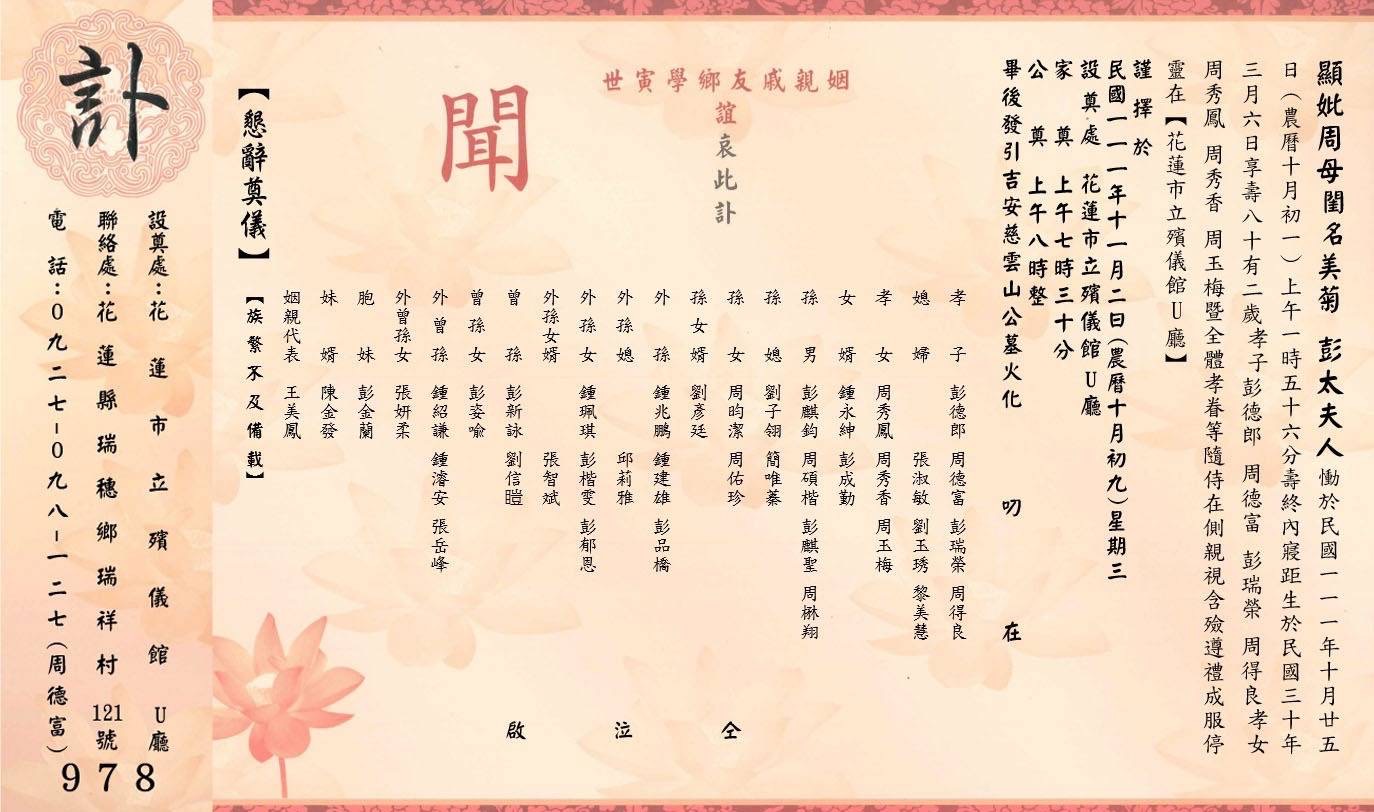 顯妣周母閨名美菊　彭太夫人慟於民國一一一年十月廿五
日（農曆十月初一）上午一時五十六分壽終內寢距生於民國三十年
三月六日享壽八十有二歲孝子彭德郎　周德富　彭瑞榮　周得良孝女
周秀鳳　周秀香　周玉梅暨全體孝眷等隨侍在側親視含殮遵禮成服停
靈在【花蓮市立殯儀館U廳】
謹擇於
民國一一一年十一月二日（農曆十月初九）星期三
設奠處　花蓮市立殯儀館U廳
家　奠　上午七時三十分
公　奠　上午八時整
畢後發引吉安慈雲山公墓火化　叨　在
姻親戚友鄉學寅世
誼
哀此訃
聞
孝子　彭德郎　周德富　彭瑞榮　周得良
媳婦　張淑敏　劉玉琇　黎美慧
孝女　周秀鳳　周秀香　周玉梅
女婿　鍾永紳　彭成勤
孫男　彭麒鈞　周碩楷　彭麒聖　周楙翔
孫媳　劉子翎　簡唯蓁
孫女　周昀潔　周佑珍
孫女婿　劉彥廷
外孫　鍾兆鵬　鍾建雄　彭品橋
外孫媳　邱莉雅
外孫女　鍾珮琪　彭楷雯　彭郁恩
外孫女婿　張智斌
曾孫　彭新詠　劉信暟
曾孫女　彭姿喻
外曾孫　鍾紹謙　鍾濬安　張岳峰
外曾孫女　張妍柔
胞妹　彭金蘭
妹婿　陳金發
姻親代表　王美鳳
仝　泣　啟
【族繁不及備載】
【懇辭奠儀】
訃
設奠處：花蓮市立殯儀館　U廳
聯絡處：花蓮縣瑞穗鄉瑞祥村121號
電　話：０九二七－０九八－一二七（周德富）
978